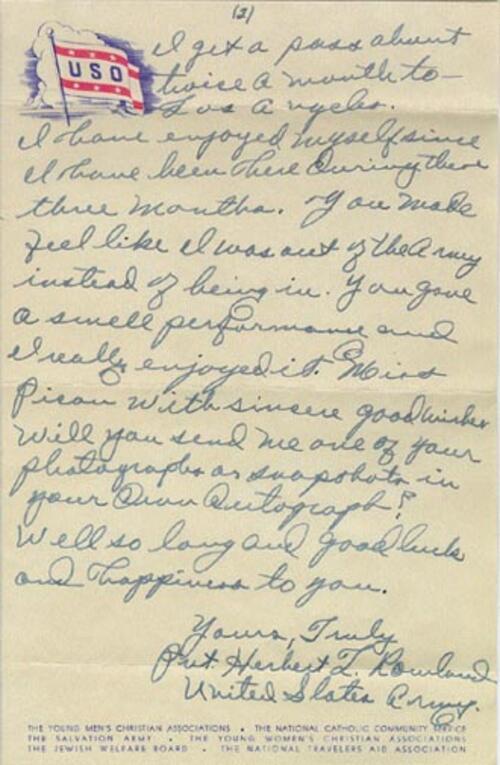 (2)
USO
I get a pass about
twice a month to
Los Angeles.
I have enjoyed myself since
I have been here During these
three months. You made
feel like I was out of the Army
instead of being in. You gave
a swell performance and
I really enjoyed it. Miss
Picon with sincere good wishes
will you send me one of your
photographs or snapshots in
your Own Autograph?
Well so long and good luck
and happiness to you.
Yours, Truly
Pvt. Herbert L. Rowland
United States Army.
THE YOUNG MEN'S CHRISTIAN ASSOCIATIONS • THE NATIONAL CATHOLIC COMMUNITY SERVICE
THE SALVATION ARMY • THE YOUNG WOMEN'S CHRISTIAN ASSOCIATIONS
THE JEWISH WELFARE BOARD • THE NATIONAL TRAVELERS AID ASSOCIATION